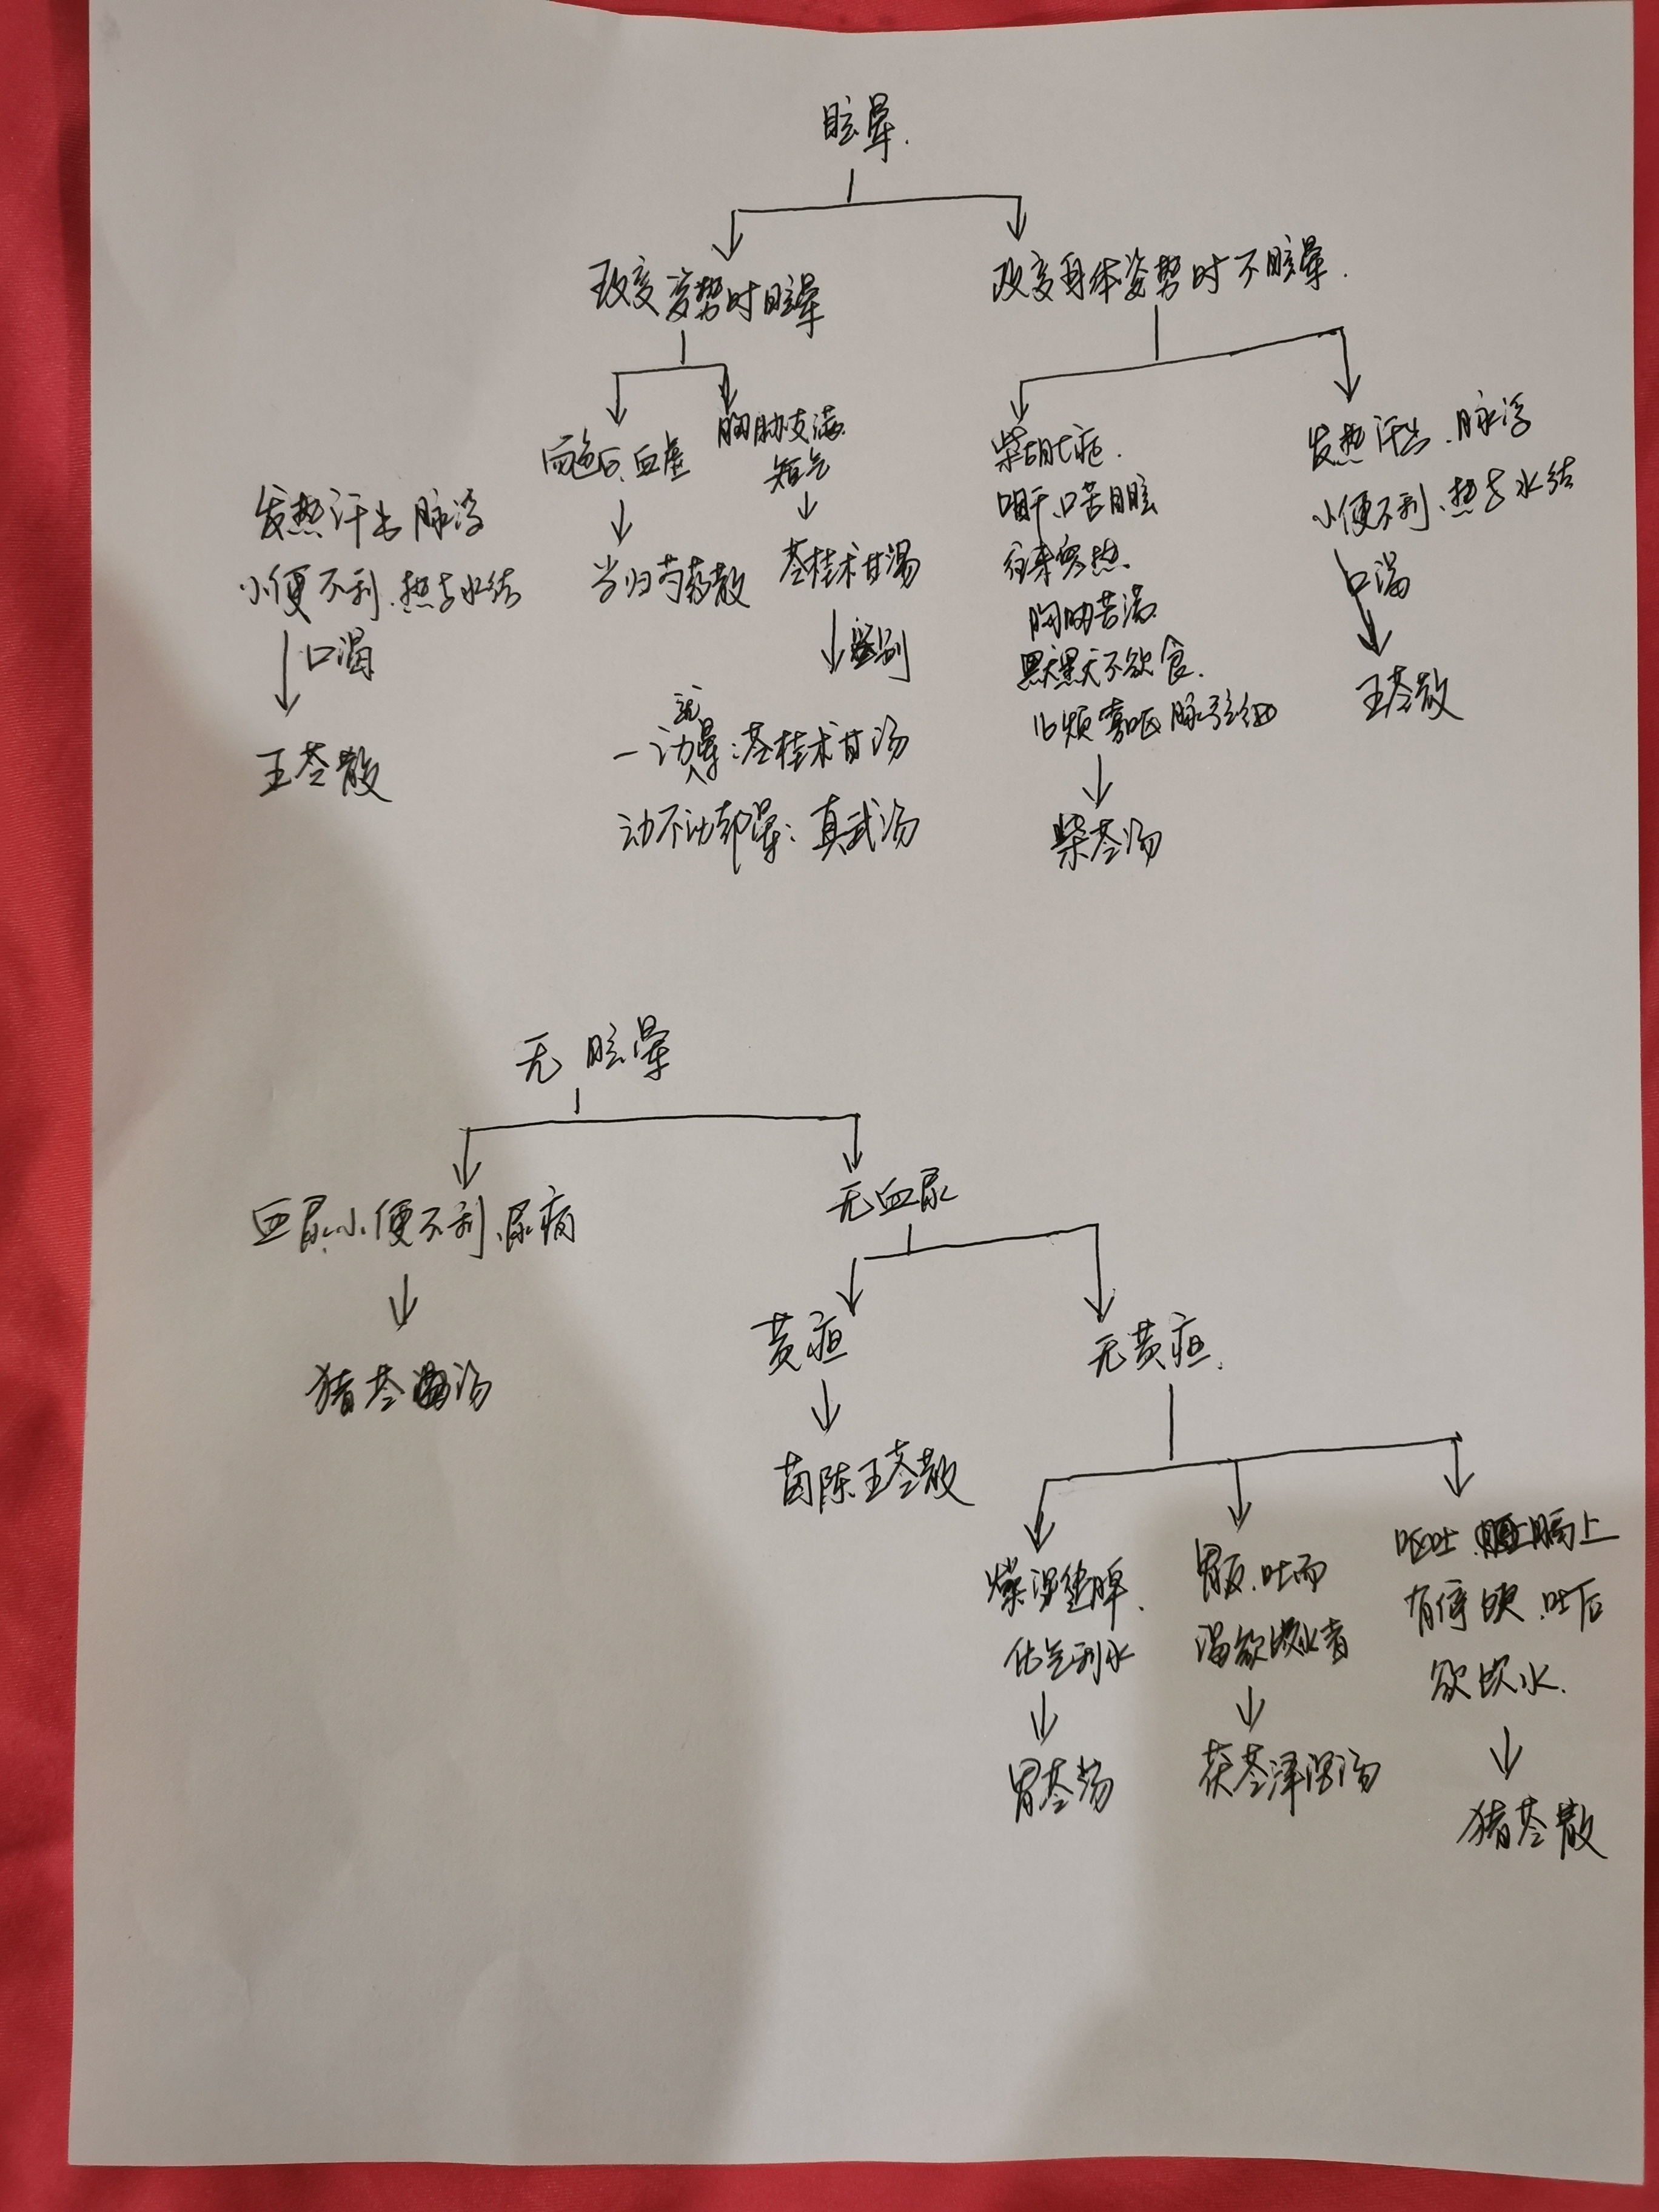 眩晕.
改变姿势时眩晕
改变身体姿势时不眩晕.
面色白、血虚
胸胁支满
短气
柴胡七症.
咽干、口苦目眩
往来寒热.
胸胁苦满.
默默不欲食.
心烦喜呕 脉弦细
发热汗出、脉浮
小便不利、热与水结
口渴
五苓散
发热汗出 脉浮
小便不利、热与水结
口渴
五苓散
当归芍药散
苓桂术甘汤
鉴别
一动就晕:苓桂术甘汤
动不动都晕:真武汤
柴苓汤
无 眩晕
血尿、小便不利、尿病
猪苓汤
无血尿
黄疸
茵陈五苓散
无黄疸.
燥湿健脾.
化气利水
胃苓汤
胃反、吐而
渴欲饮水者
茯苓泽泻汤
呕吐、膈上
有停饮、吐后
欲饮水.
猪苓散